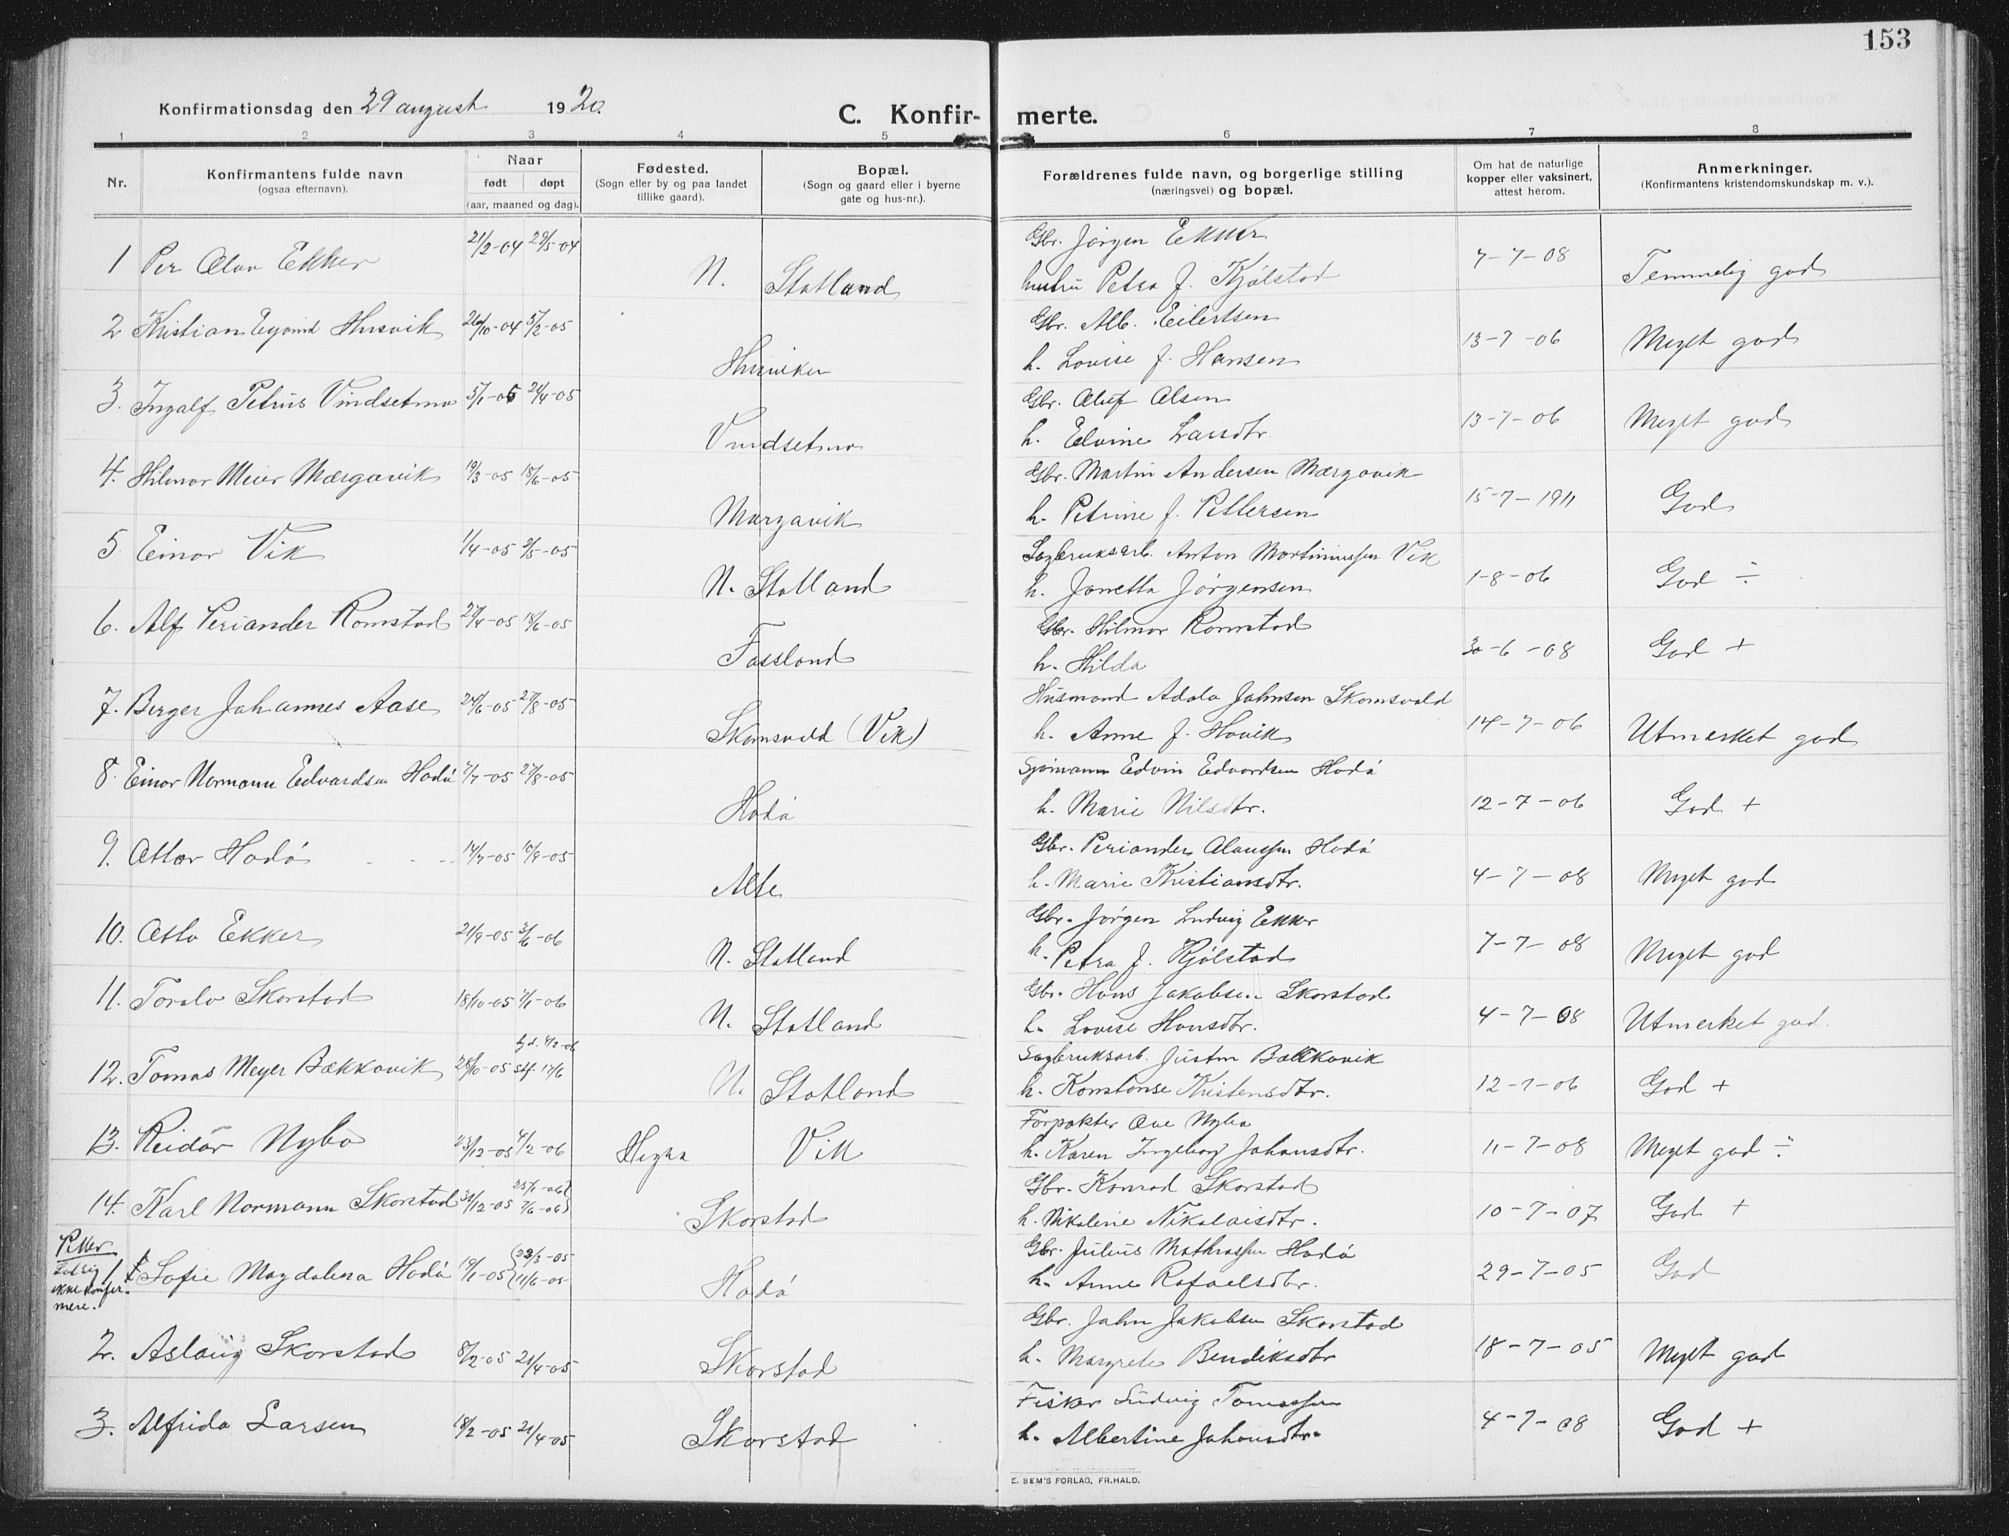 153
Konfirmationsdag den 29 august 1920.
C. Konfir- merte.
1 2 3 4 5 6 7 8
Nr.
Konfirmantens fulde navn
(ogsaa efternavn).
Naar
født døpt
(aar, maaned og dag).
Fødested.
(Sogn eller by og paa landet
tillike gaard).
Bopæl.
(Sogn og gaard eller i byerne
gate og hus-nr.).
Forældrenes fulde navn, og borgerlige stilling
(næringsvei) og bopæl.
Om hat de naturlige
kopper eller vaksinert,
attest herom.
Anmerkninger.
(Konfirmantens kristendomskundskap m. v.).
1 Per Olav Ekker 21/2-04 29/5-04 N. Statland
Gbr. Jørgen Ekker
hustru Petra f. Kjølstad 7-7-08 Temmelig god
2 Kristian Eyvind Husvik 26/10-04 5/2-05 Husviken
Gbr. Alb. Eilertsen
h. Lovise f. Hansen 13-7-06 Meget god
3. Ingolf Petrus Vindsetmo 5/1-05 24/4-05 Vindsetmo
Gbr. Oluf Olsen
h. Edvine Larsdtr 13-7-06 Meget god
4. Hilmar Meier Mærgavik 19/3-05 18/6-05 Margavik
Gbr. Martin Andersen Mærgavik
h. Petrine f. Pettersen 15-7-1911 God
5. Einar Vik 1/4-05 2/5-05 N. Statland
Sagbruksarb. Anton Martinussen Vik
h. Janetta Jørgensen 1-8-06 God ÷
6. Alf Periander Romstad 27/4-05 18/6-05 Fossland
Gbr. Hilmar Romstad
h. Hilda 30-6-08 God +
7. Berger Johannes Aase 24/6-05 27/8-05 Skomsvold (Vik)
Husmand Adolo Johnsen Skomsvold
h. Anne f. Hovik 14-7-06 Utmerket god
8. Einar Normann Edvardsen Hodø 7/7-05 27/8-05 Hodø
Sjømann Edvin Edvardsen Hodø
h. Marie Nilsdtr. 12-7-06 God +
9. Ottar Hodø 14/7-05 10/9-05 Alte
Gbr. Periander Olaussen Hodø
h. Marie Kristiansdtr. 4-7-08 Meget god
10. Otto Ekker 21/9-05 3/6-06 N. Statland
Gbr. Jørgen Ludvig Ekker
h. Petra f. Kjølstad 7-7-08 Meget god
11. Toralv Skorstad 18/10-05 7/1-06 N. Statland
Gbr. Hans Jakobsen Skorstad
h. Lovise Hansdtr. 4-7-08 Utmerket god.
12. Tomas Meyer Bækkavik 28/10-05 hj.d. 4/2-06 stf. 17/6 N. Statland
Sagbruksarb. Justin Bækkavik
h. Konstanse Kristensdtr. 12-7-06 God +
13. Reidar Nybo 23/12-05 4/2-06 Hegra Vik
Forpakter Ove Nybo
h. Karen Ingeborg Johansdtr. 11-7-08 Meget god ÷
14. Karl Normann Skorstad 31/12-05 25/1-06 7/6-06 Skorstad
Gbr. Konrad Skorstad
h. Nikoline Nikolaisdtr. 10-7-07 God +
Piker
Lot sig
ikke konfir-
mere.
1 Sofie Magdalena Hodø 19/1-05 23/3-05 11/6-05 Hodø
Gbr. Julius Mathiassen Hodø
h. Anne Rafaelsdtr. 29-7-05 God
2. Aslaug Skorstad 8/2-05 21/4-05 Skorstad
Gbr. John Jakobsen Skorstad
h. Margrete Bendiksdtr 18-7-05 Meget god
3. Alfrida Larsen 18/2-05 21/4-05 Skorstad
Fisker Ludvig Tomassen
h. Albertine Johansdtr. 4-7-08 God +
E. SEM'S FORLAG, FR.HALD.